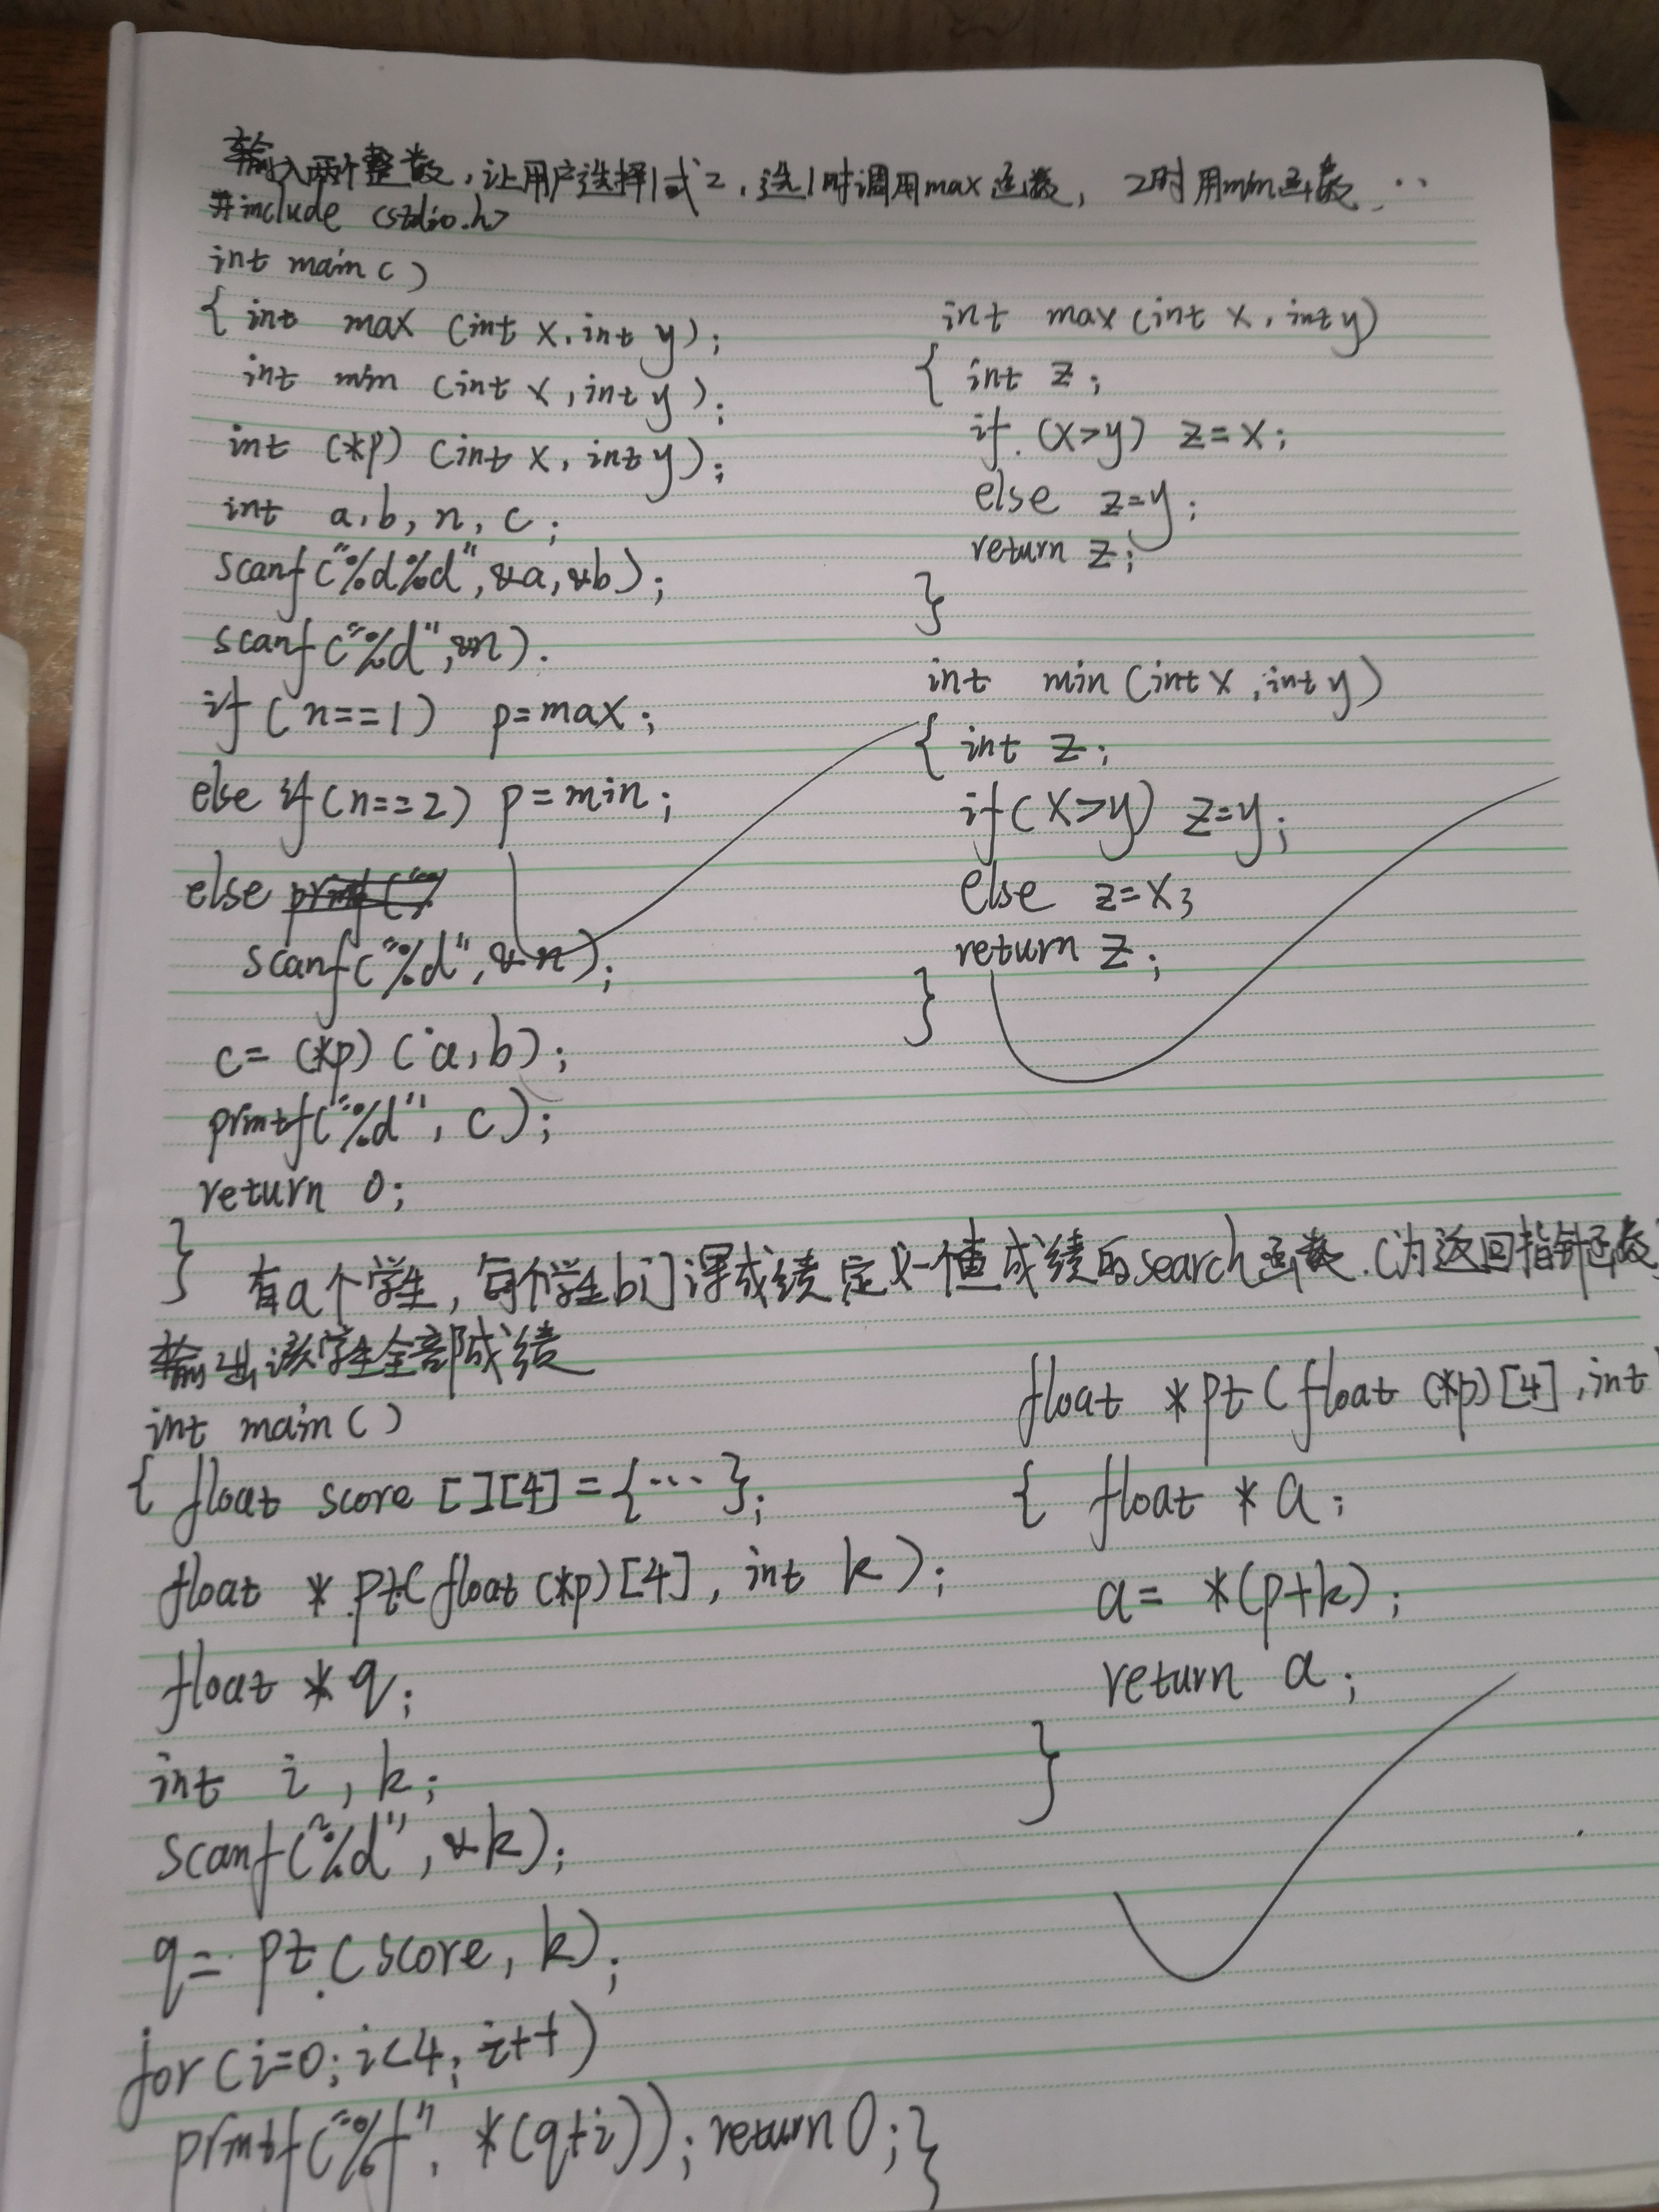 输入两个整数，让用户选择1或2，选1时调用max函数，2时用min函数，..
#include <stdio.h>
int main()
{ int max (int x, int y);
int min (int x, int y);
int (*p) (int x, int y);
int a, b, n, c;
scanf("%d%d", &a, &b);
scanf("%d", &n).
if (n==1) p=max;
else if (n==2) p=min;
else
scanf("%d", &n);
c= (*p) (a, b);
printf("%d", c);
return 0;
}
int max (int x, int y)
{ int z;
if (x>y) z=x;
else z=y;
return z;
}
int min (int x, int y)
{ int z;
if (x>y) z=y;
else z=x;
return z;
}
有a个学生，每个学生b门课成绩定义一个查成绩的search函数.(为返回指针函数)
输出该学生全部成绩
int main()
{ float score [][4]={...};
float * pt(float (*p)[4], int k);
float * q;
int i, k;
scanf("%d", &k);
q= pt (score, k);
for (i=0; i<4; i++)
printf("%f", *(q+i)); return 0; }
float *pt (float (*p)[4], int
{ float * a;
a= *(p+k);
return a;
}